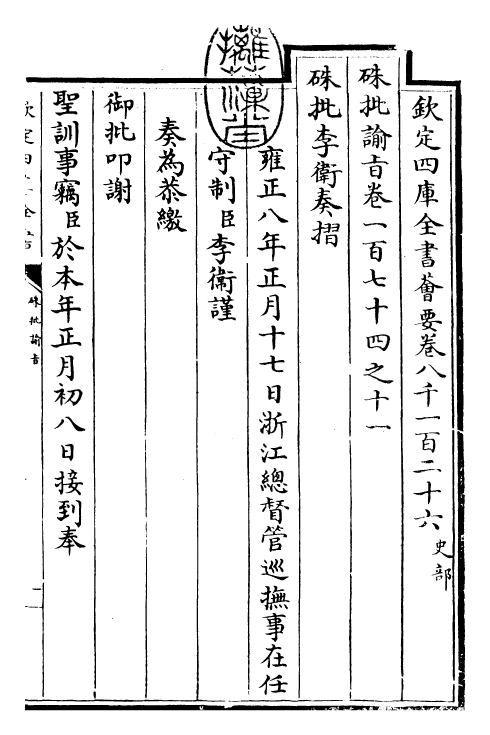 欽定四庫全書薈要卷八千一百二十六 史部
硃批諭旨卷一百七十四之十一
硃批李衛奏摺
雍正八年正月十七日浙江總督管巡撫事在任
守制臣李衛謹
奏為恭繳
御批叩謝
聖訓事竊臣於本年正月初八日接到奉
硃批諭旨